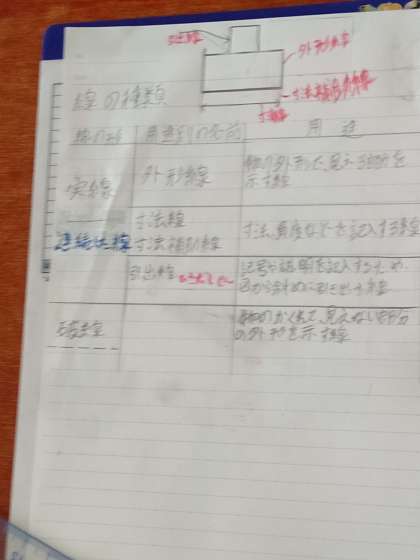 引出線
外形線
寸法補助線
寸法線
線の種類
用途別の名前
用途
実線
外形線
物の外形で見える部分を
示す線
寸法線
寸法、角度などを記入する線
連続した線
寸法補助線
引出線
記号や説明を記入するため
図から斜めに引き出す線
破線
物のかくれて見えない部分
の外形を示す線